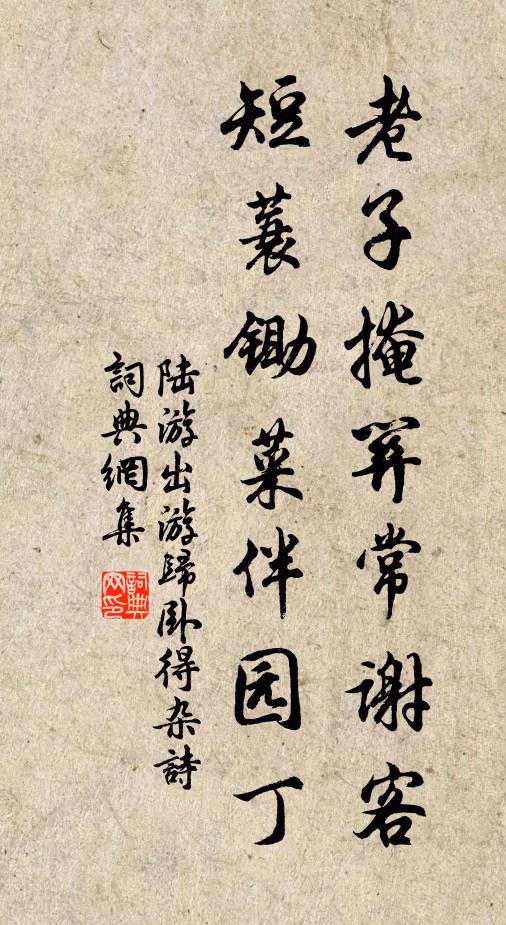 老子掩關常谢客
短蓑锄菜伴园丁
陆游出游歸卧得杂詩
詞典網集
詞典网印